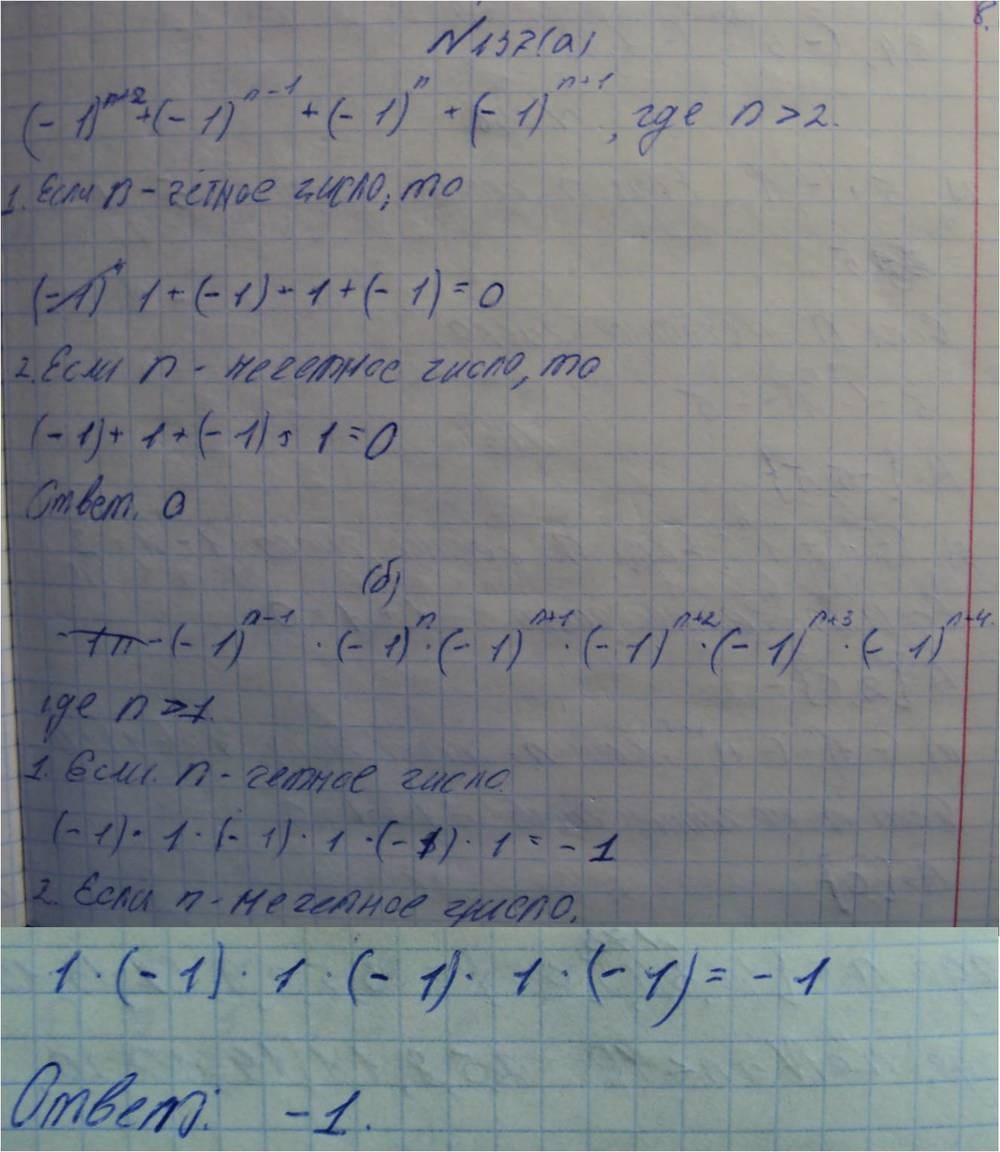 8.
N137(а)
(-1)^{n+2}+(-1)^{n-1}+(-1)^n+(-1)^{n+1}, где n>2.
1. Если n - чётное число, то
1+(-1)+1+(-1)=0
2. Если n - нечетное число, то
(-1)+1+(-1)+1=0
Ответ. 0
(б)
(-1)^{n-1}·(-1)^n·(-1)^{n+1}·(-1)^{n+2}·(-1)^{n+3}·(-1)^{n+4}
где n>1.
1. Если n - четное число.
(-1)·1·(-1)·1·(-1)·1=-1
2. Если n - нечетное число.
1·(-1)·1·(-1)·1·(-1)=-1
Ответ: -1.